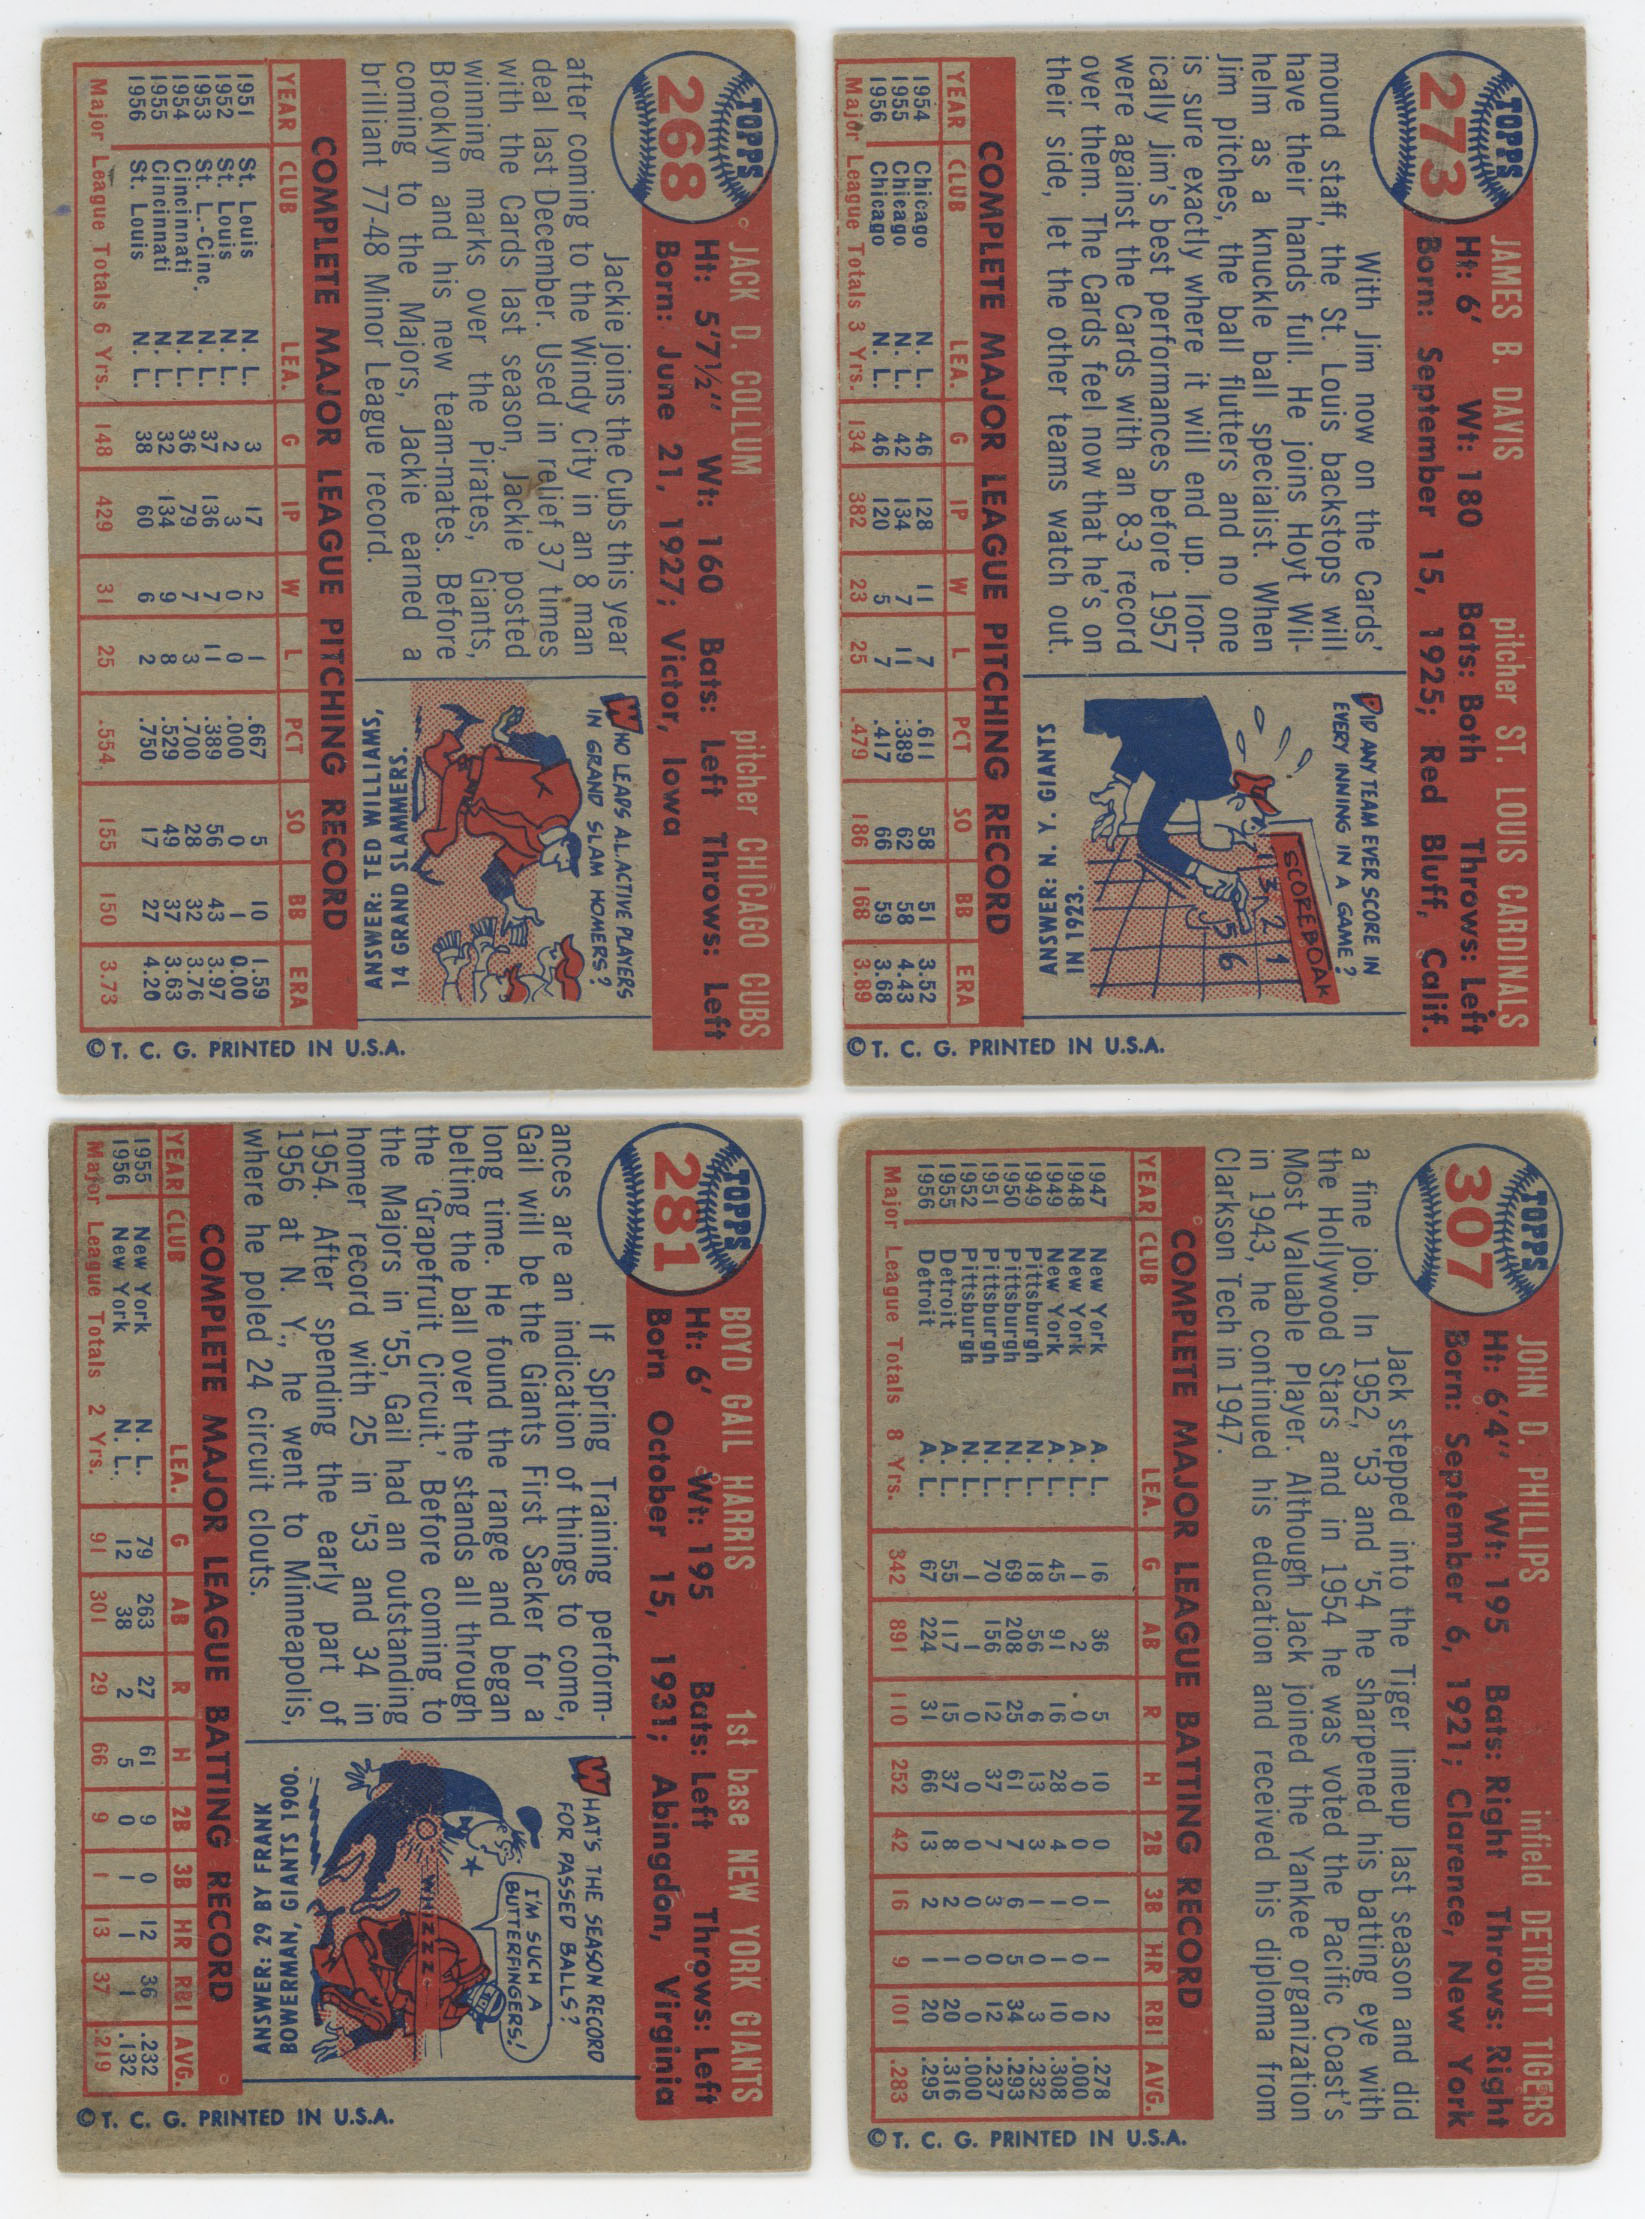 TOPPS
268
JACK D. COLLUM pitcher CHICAGO CUBS
Ht: 5'7½" Wt: 160 Bats: Left Throws: Left
Born: June 21, 1927; Victor, Iowa
Jackie joins the Cubs this year
after coming to the Windy City in an 8 man
deal last December. Used in relief 37 times
with the Cards last season, Jackie posted
winning marks over the Pirates, Giants,
Brooklyn and his new team-mates. Before
coming to the Majors, Jackie earned a
brilliant 77-48 Minor League record.
WHO LEADS AL ACTIVE PLAYERS
IN GRAND SLAM HOMERS?
ANSWER: TED WILLIAMS,
14 GRAND SLAMMERS.
COMPLETE MAJOR LEAGUE PITCHING RECORD
YEAR CLUB LEA. G IP W L PCT SO BB ERA
1951 St. Louis N. L. 3 17 2 1 .667 5 10 1.59
1952 St. Louis N. L. 2 3 0 0 .000 0 1 0.00
1953 St. L.-Cinc. N. L. 37 136 7 11 .389 56 43 3.97
1954 Cincinnati N. L. 36 79 7 3 .700 28 32 3.76
1955 Cincinnati N. L. 32 134 9 8 .529 49 37 3.63
1956 St. Louis N. L. 38 60 6 2 .750 17 27 4.20
Major League Totals 6 Yrs. 148 429 31 25 .554 155 150 3.73
© T. C. G. PRINTED IN U.S.A.
TOPPS
273
JAMES B. DAVIS pitcher ST. LOUIS CARDINALS
Ht: 6' Wt: 180 Bats: Both Throws: Left
Born: September 15, 1925; Red Bluff, Calif.
With Jim now on the Cards'
mound staff, the St. Louis backstops will
have their hands full. He joins Hoyt Wil-
helm as a knuckle ball specialist. When
Jim pitches, the ball flutters and no one
is sure exactly where it will end up. Iron-
ically Jim's best performances before 1957
were against the Cards with an 8-3 record
over them. The Cards feel now that he's on
their side, let the other teams watch out.
DID ANY TEAM EVER SCORE IN
EVERY INNING IN A GAME?
SCOREBOARD
1 3 2 4
5 6
ANSWER: N. Y. GIANTS
IN 1923.
COMPLETE MAJOR LEAGUE PITCHING RECORD
YEAR CLUB LEA. G IP W L PCT SO BB ERA
1954 Chicago N. L. 46 128 11 7 .611 58 51 3.52
1955 Chicago N. L. 42 134 7 11 .389 62 58 4.43
1956 Chicago N. L. 46 120 5 7 .417 66 59 3.68
Major League Totals 3 Yrs. 134 382 23 25 .479 186 168 3.89
© T. C. G. PRINTED IN U.S.A.
TOPPS
281
BOYD GAIL HARRIS 1st base NEW YORK GIANTS
Ht: 6' Wt: 195 Bats: Left Throws: Left
Born October 15, 1931; Abingdon, Virginia
If Spring Training perform-
ances are an indication of things to come,
Gail will be the Giants First Sacker for a
long time. He found the range and began
belting the ball over the stands all through
the 'Grapefruit Circuit.' Before coming to
the Majors in '55, Gail had an outstanding
homer record with 25 in '53 and 34 in
1954. After spending the early part of
1956 at N. Y., he went to Minneapolis,
where he poled 24 circuit clouts.
WHAT'S THE SEASON RECORD
FOR PASSED BALLS?
I'M SUCH A
BUTTERFINGERS!
WHIZZZ
ANSWER: 29 BY FRANK
BOWERMAN, GIANTS 1900.
COMPLETE MAJOR LEAGUE BATTING RECORD
YEAR CLUB LEA. G AB R H 2B 3B HR RBI AVG.
1955 New York N. L. 79 263 27 61 9 0 12 36 .232
1956 New York N. L. 12 38 2 5 0 1 1 1 .132
Major League Totals 2 Yrs. 91 301 29 66 9 1 13 37 .219
© T. C. G. PRINTED IN U.S.A.
TOPPS
307
JOHN D. PHILLIPS infield DETROIT TIGERS
Ht: 6'4" Wt: 195 Bats: Right Throws: Right
Born: September 6, 1921; Clarence, New York
Jack stepped into the Tiger lineup last season and did
a fine job. In 1952, '53 and '54 he sharpened his batting eye with
the Hollywood Stars and in 1954 he was voted the Pacific Coast's
Most Valuable Player. Although Jack joined the Yankee organization
in 1943, he continued his education and received his diploma from
Clarkson Tech in 1947.
COMPLETE MAJOR LEAGUE BATTING RECORD
YEAR CLUB LEA. G AB R H 2B 3B HR RBI AVG.
1947 New York A. L. 16 36 5 10 0 1 1 2 .278
1948 New York A. L. 1 2 0 0 0 0 0 0 .000
1949 New York A. L. 45 91 16 28 4 1 1 10 .308
1949 Pittsburgh N. L. 18 56 6 13 3 1 0 3 .232
1950 Pittsburgh N. L. 69 208 25 61 7 6 5 34 .293
1951 Pittsburgh N. L. 70 156 12 37 7 3 0 12 .237
1952 Pittsburgh N. L. 1 1 0 0 0 0 0 0 .000
1955 Detroit A. L. 55 117 15 37 8 2 1 20 .316
1956 Detroit A. L. 67 224 31 66 13 2 1 20 .295
Major League Totals 8 Yrs. 342 891 110 252 42 16 9 101 .283
© T. C. G. PRINTED IN U.S.A.